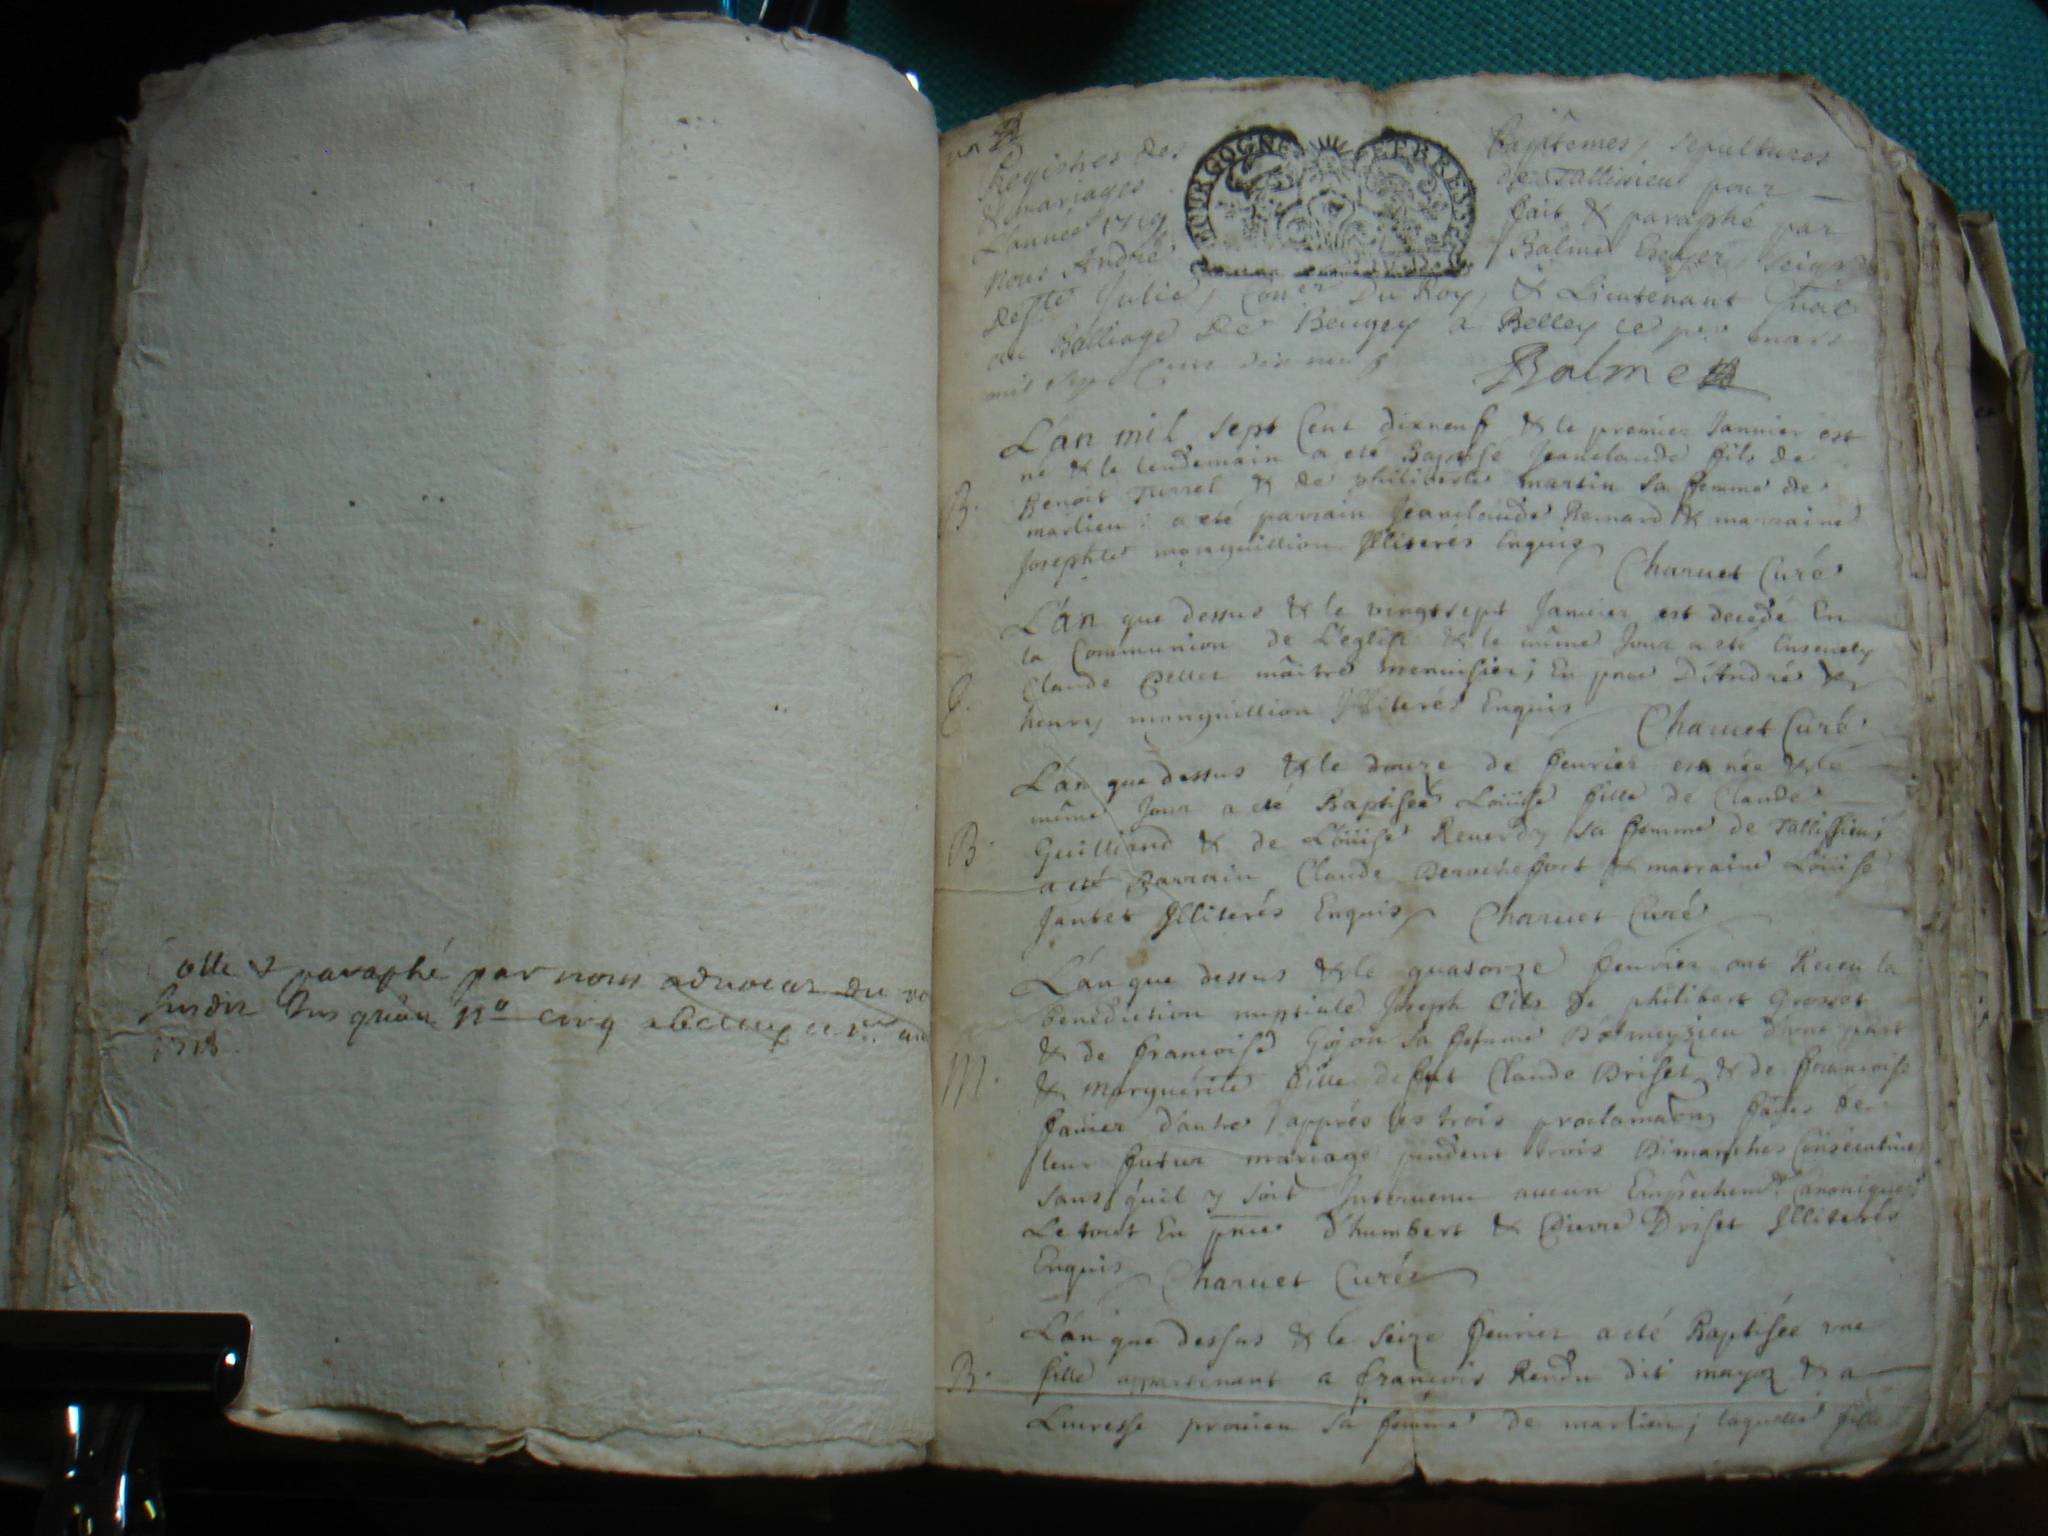 Cotté & paraphé par nous
Jusqu'au n° cinq
1718.
un
Registres des Baptêmes, sepultures
& mariages de Tallissieu pour
L'année 1719 fait & paraphé par
Nous André Balme Escuyer Seigr
de Ste Julie, Coner Du Roy, & Lieutenant Gnal
au Balliage De Beugey a Belley le per mars
mil sept Cens dix neuf Balme
BOURGOGNE ET BRESSE
L'an mil sept Cent dixneuf & le premier Janvier est
né & le lendemain a eté Baptisé Jeanclaude fils de
B. Benoit Turrel & de philiberte martin sa femme de
marlieu : a eté parrain Jeanclaude Bernard & marraine
Josephte monguillion Jlliterés Enquis Charuet Curé
L'an que dessus & le vingtsept Janvier est decedé En
la Communion de L'eglise & le même Jour a eté Enseuely
Claude mâitre menuisier ; En pnce D'André &
henry monguillion Jlliterés Enquis Charuet Curé
L'an que dessus & le douze de feurier est née & le
même Jour a eté Baptisée Loüise fille de Claude
B. Guilliand & de Loüise Reuerdy sa femme de Tallissieu ;
a eté Parrain Claude Derochefort & marraine Loüise
Jantet Jlliterés Enquis Charuet Curé
L'an que dessus & le quatorze feurier ont Receu la
Benediction nuptiale Joseph fils de philibert Grosset
& de francoise Gojon sa femme D'ameyzieu d'une part
M. & marguerite fille de fut Claude Driset & de francoise
fauier d'autre appres les trois proclamaons faites de
leur futur mariage pendent trois Dimanches Consecutiues
sans qu'il y soit Jnteruenu aucun Empêchemt Canonique ;
Le tout En pnce d'humbert & Pierre Driset Jlliterés
Enquis Charuet Curé
L'an que dessus & le seize feurier a eté Baptisée une
B. fille appartenant a françois Rendu dit mayoz & a
Lucresse prouien sa femme de marlieu ; laquelle fille